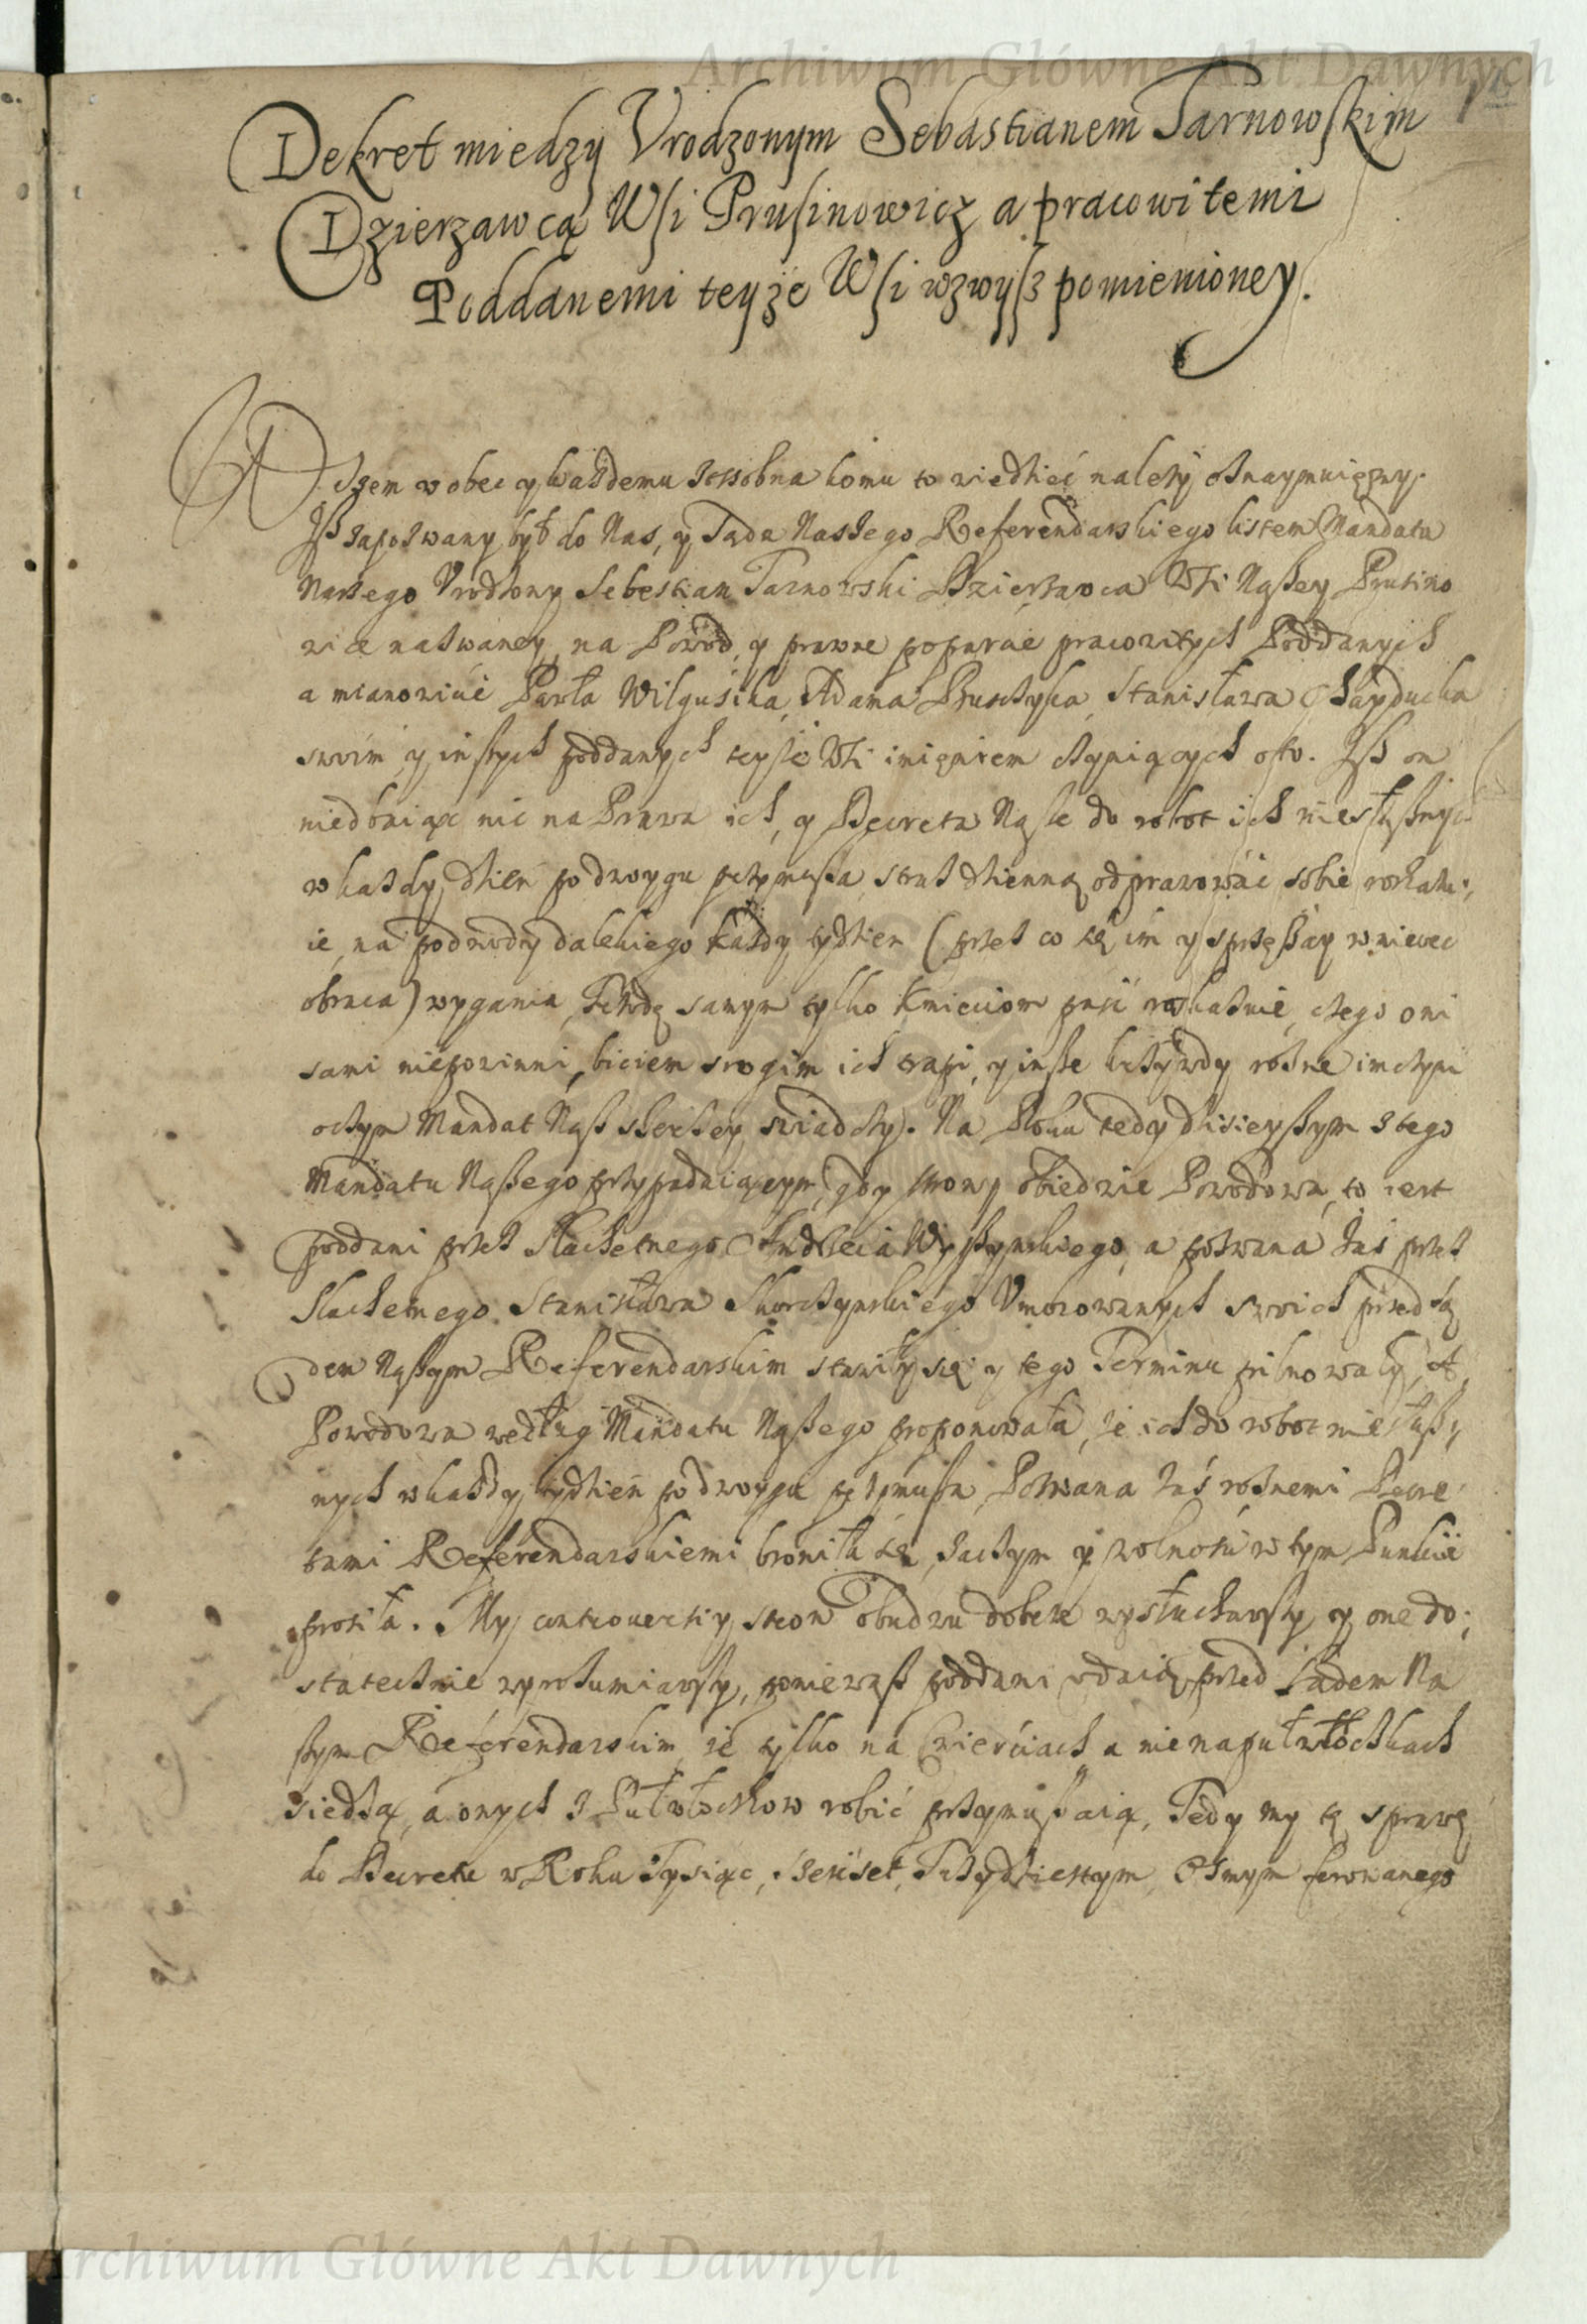 Archiwum Główne Akt Dawnych
Dekret miedzy Vrodzonym Sebastianem Tarnowskim
Dzierzawcą Wsi Prusinowicz a pracowitemi
Poddanemi teyże Wsi wzwysz pomienioney.
wobec y każdemu zossobna komu to wiedzieć należy oznaymuięmy.
Isz zapozwany był do Nas, y Sądu Naszego Referendarskiego listem Mandatu
Naszego Vrodzony Sebestian Tarnowski Dzierżawca Wsi Naszey Prusino
wice nazwaney, na Powód, y prawne poparcie pracowitych Poddanych
a mianowicie Pawła Wilgusika, Adama, Stanisława
swoim y inszych poddanych teyże Wsi imięniem czyniących oto. Isz on
niedbaiąc nic na Prawa ich, y Decreta Nasze do robot ich niesłusznych
w każdy dzień po dwoygu przymusza, straż dzienną odprawować sobie roskazu,
ie, na podwody dalekiego każdy tydzien (przez co się im y sprzężay wniwec
obraca) wygania, samym tylko Kmieciom roskazuie, czego oni
sami niepowinni, biciem srogim ich trapi, y insze krzywdy rożne im czyni
oczym Mandat Nasz szerzey swiadczy. Na Roku tedy dzisieyszym z tego
Mandatu Naszego przypadaiącym, gdy strony obiedwie Powodowa, to iest
poddani przez Slachetnego Andrzeia Wyszynskiego, a pozwana zaś przez
Slachetnego Stanisława Skorczynskiego Vmocowanych swoich przed Są
dem Naszym Referendarskim stawiły się y tego Terminu pilnowały,
Powodowa według Mandatu Naszego proponowała, że ich do robot niesłusz,
nych w każdy tydzień po dwoygu przymusza, Pozwana zaś rożnemi Decre,
tami Referendarskiemi broniła się, zaczym y wolności w tym Punkcie
prosiła. My controversiy stron obudwu dobrze wysłuchawszy y one do,
statecznie wyrozumiawszy, poniewasz poddani vdaią przed Sądem Na
szym Referendarskim, że tylko na cwierciach a nie na puł włoczkach
siedzą, a onych z Pułwłoczkow robić przymuszaią, Tedy my tę sprawę
do Decretu w Roku Tysiąc, Szeset, Trzydziestym, Osmym ferowanego
Archiwum Główne Akt Dawnych